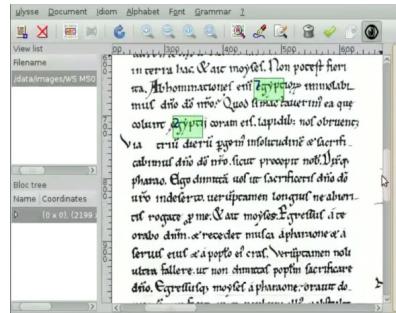 ulysse Document Idiom Alphabet Font Grammar ?
View list
Filename
/data/images/WS MS0
Bloc tree
Name Coordinates
(0 x 0), (2199
00 300 400 500 600
700
800
900
in terra hac. Et ait moyses. Non potest fieri
ita. Abhominationes eni egyptiorum immolabi
mus dño dõ nr̃o. Quod si mactauerim ea que
colunt egyptij coram eis. lapidib; nos obruent;
Via triũ dierũ pgem in solitudinẽ & sacrifi
cabimus dño dõ nr̃o. sicut p̃cepit nob.
pharao. Ego dimittã uos ut sacrificetis dño dõ
ur̃o in deserto. ueruptamen longius ne abieri
tis rogate p me. Et ait moyses. Egressus a te
orabo dñm. & recedet musca a pharaone & a
seruis eius & a poplo ei cras. Veruptamen noli
ultra fallere. ut non dimittas poplm sacrificare
dño. Egressusq; moyses a pharaone. orauit do